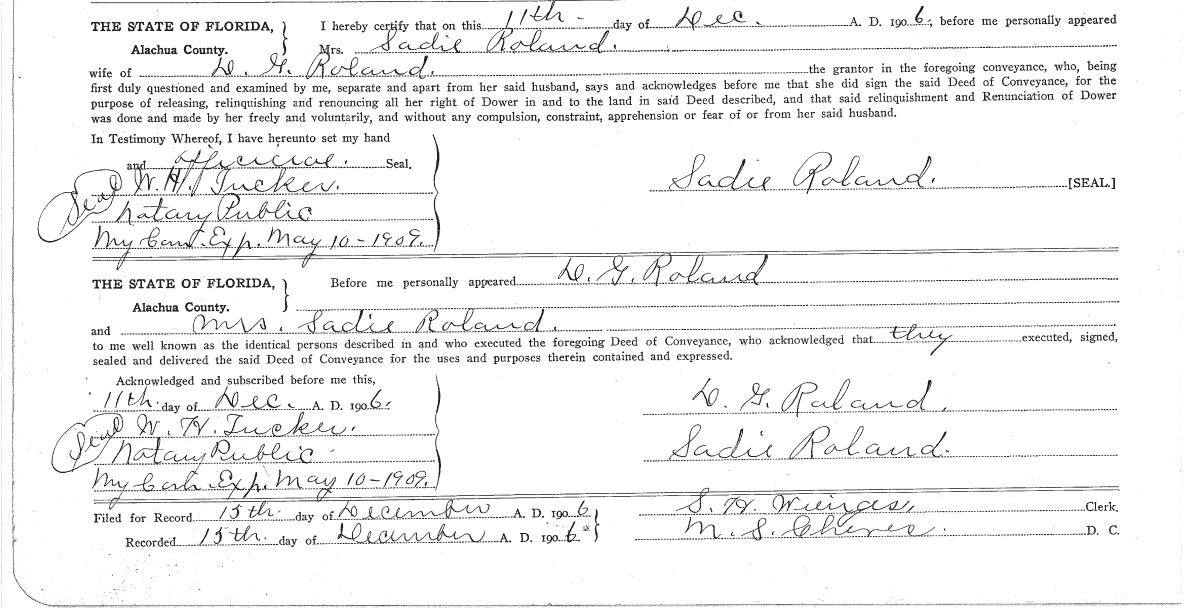 THE STATE OF FLORIDA, I hereby certify that on this 11th - day of Dec. A. D. 190 6, before me personally appeared
Alachua County. Mrs. Sadie Roland.
wife of D. G. Roland. the grantor in the foregoing conveyance, who, being
first duly questioned and examined by me, separate and apart from her said husband, says and acknowledges before me that she did sign the said Deed of Conveyance, for the
purpose of releasing, relinquishing and renouncing all her right of Dower in and to the land in said Deed described, and that said relinquishment and Renunciation of Dower
was done and made by her freely and voluntarily, and without any compulsion, constraint, apprehension or fear of or from her said husband.
In Testimony Whereof, I have hereunto set my hand
and official. Seal.
Seal W. H. Tucker. Sadie Roland. [SEAL.]
Notary Public
My Com. Exp. May 10-1909.
THE STATE OF FLORIDA, Before me personally appeared D. G. Roland
Alachua County.
and Mrs. Sadie Roland.
to me well known as the identical persons described in and who executed the foregoing Deed of Conveyance, who acknowledged that they executed, signed,
sealed and delivered the said Deed of Conveyance for the uses and purposes therein contained and expressed.
Acknowledged and subscribed before me this,
11th. day of Dec. A. D. 190 6. D. G. Roland.
Seal W. H. Tucker.
Notary Public Sadie Roland.
My Com. Exp. May 10-1909.
Filed for Record 15th. day of December A. D. 190 6 S. H. Wienges, Clerk.
Recorded 15th. day of December A. D. 190 6 M. S. Cheves. D. C.